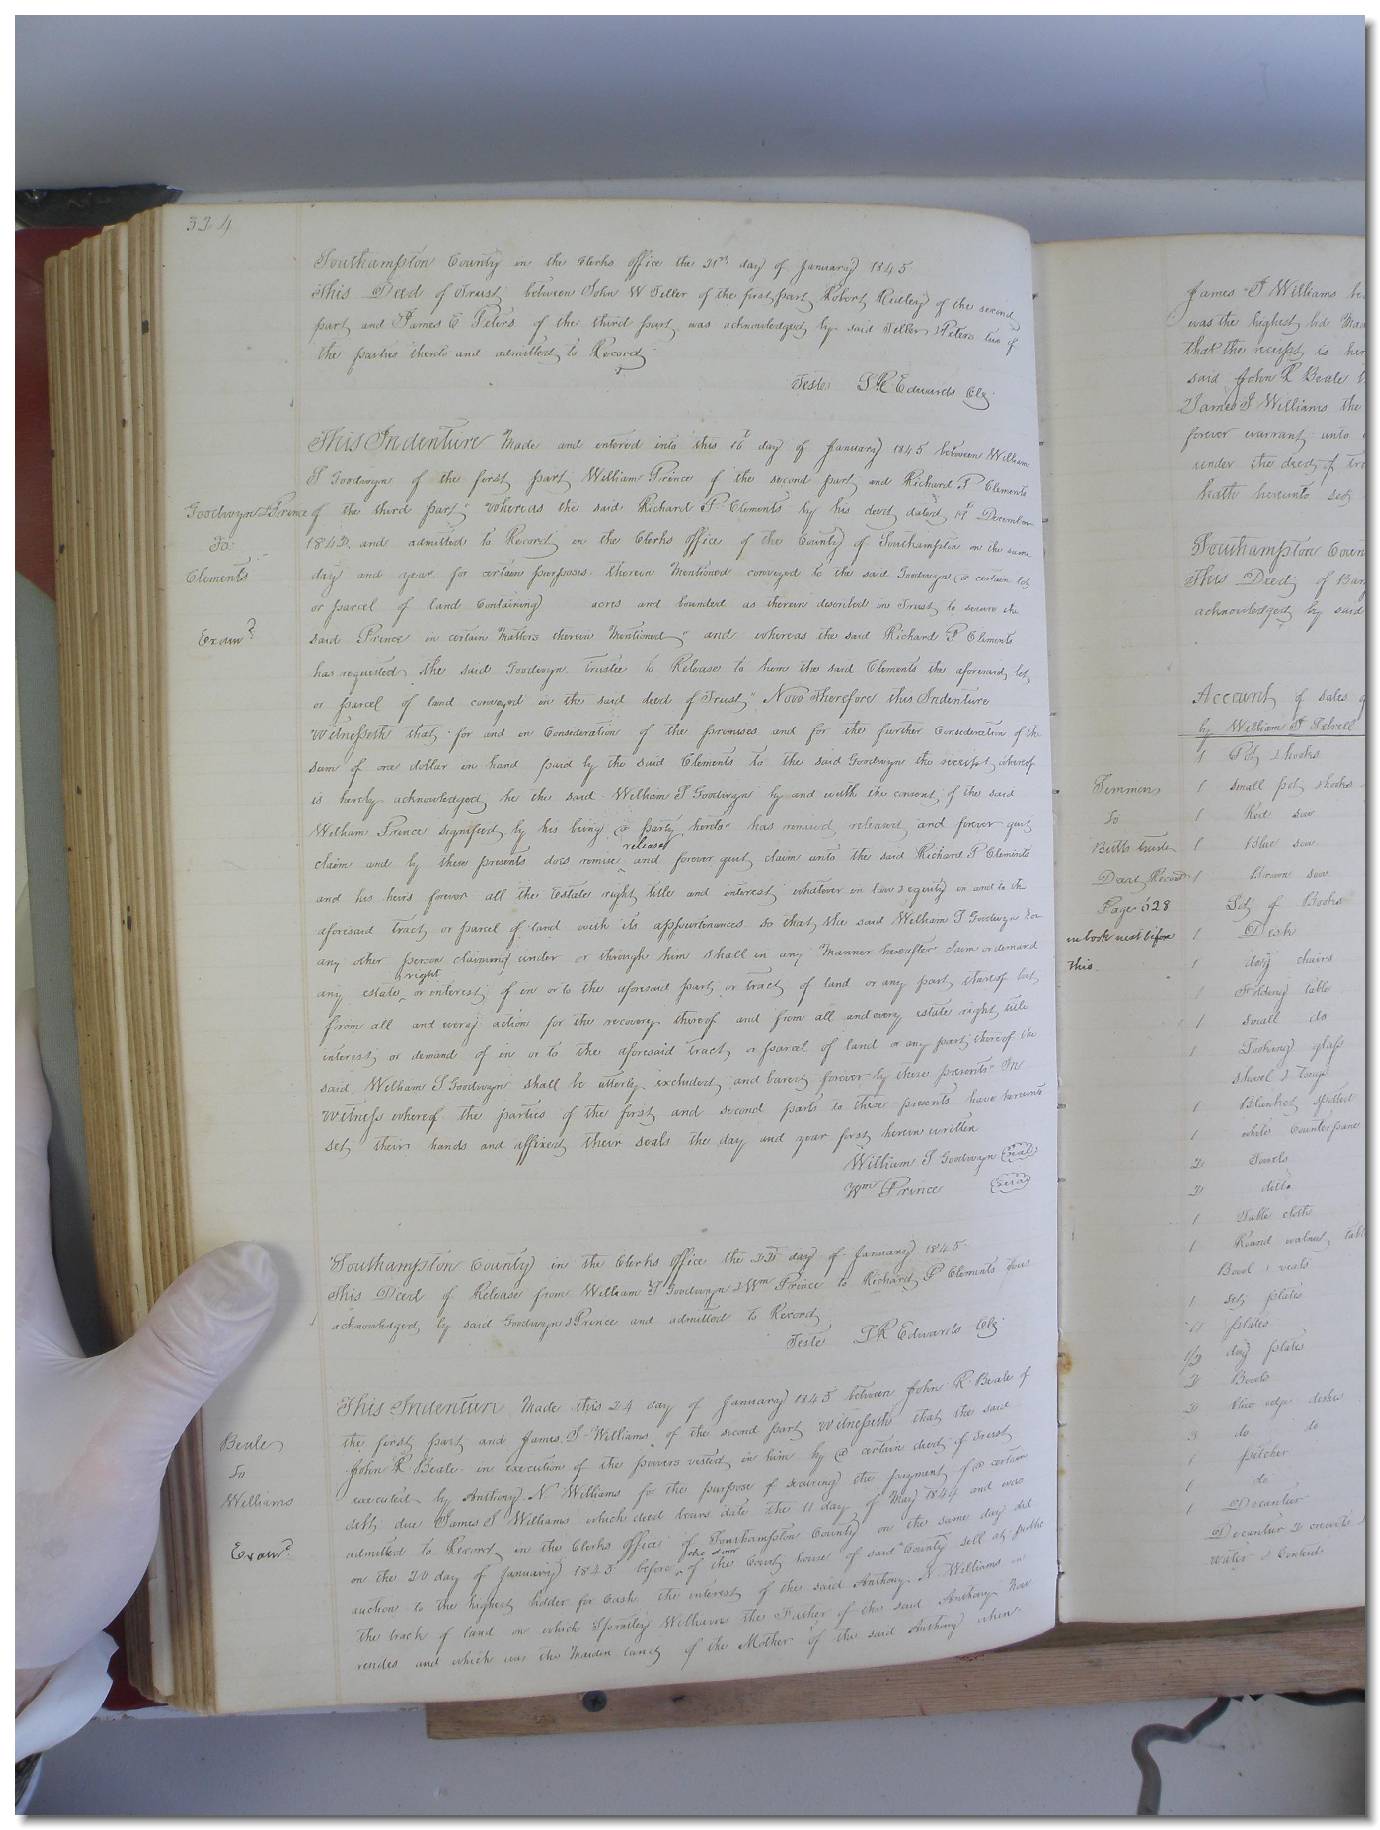 334
Southampton County in the Clerks office the 21st day of January 1845
This Deed of Trust between John W Teller of the first part Robert Ridley of the second
part and James E Peters of the third part was acknowledged by said Teller & Peters two of
the parties thereto and admitted to Record
Teste L R Edwards Clk
This Indenture Made and entered into this 16th day of January 1845 between William
T Goodwyn of the first part William Prince of the second part and Richard P Clements
Goodwyn & Prince
To
Clements
Examd
of the third part; Whereas the said Richard P Clements by his deed dated 19th December
1842 and admitted to Record in the Clerks office of the County of Southampton on the same
day and year for certain purposes therein Mentioned conveyed to the said Goodwyn a certain lot
or parcel of land Containing acres and bounded as therein described in Trust to secure the
said Prince in certain Matters therein Mentioned, and whereas the said Richard P Clements
has requested the said Goodwyn trustee to Release to him the said Clements the aforesaid lot
or parcel of land conveyed in the said deed of Trust Now Therefore this Indenture
Witnesseth that for and in Consideration of the premises and for the further Consideration of the
sum of one dollar in hand paid by the said Clements to the said Goodwyn the receipt whereof
is hereby acknowledged he the said William T Goodwyn by and with the consent of the said
William Prince signified by his being a party hereto has remised, released and forever quit
claim and by these presents does remise released and forever quit claim unto the said Richard P Clements
and his heirs forever all the Estate right title and interest whatever in law & equity in and to the
aforesaid tract or parcel of land with its appurtenances so that the said William T Goodwyn nor
any other person claiming under or through him shall in any Manner hereafter claim or demand
any estate right or interest of in or to the aforesaid part or tract of land or any part thereof but
from all and every action for the recovery thereof and from all and every estate right title
interest or demand of in or to the aforesaid tract or parcel of land or any part thereof the
said William T Goodwyn shall be utterly excluded and bared forever by these presents In
Witness whereof the parties of the first and second parts to these presents have hereunto
set their hands and affixed their seals the day and year first herein written
William T Goodwyn seal
Wm Prince seal
Southampton County in the Clerks office the 22d day of January 1845
This Deed of Release from William T Goodwyn & Wm Prince to Richard P Clements was
acknowledged by said Goodwyn & Prince and admitted to Record
Teste L R Edwards Clk
Beale
To
Williams
Examd
This Indenture Made this 24 day of January 1845 between John R Beale of
the first part and James T Williams of the second part Witnesseth that the said
John R Beale in execution of the powers vested in him by a certain deed of Trust
executed by Anthony N Williams for the purpose of securing the payment of a certain
debt due James T Williams which deed bears date the 11 day of May 1844 and was
admitted to Record in the Clerks office of Southampton County on the same day did
on the 20 day of January 1845 before the door of the Court house of said County sell at public
auction to the highest bidder for Cash the interest of the said Anthony N Williams in
the track of land on which Williams the Father of the said Anthony now
resides and which was the Maiden land of the Mother of the said Anthony when
James T Williams
was the highest bid
that the receipt is
said John R Beale
James T Williams the
forever warrant unto
under the deed of
hath hereunto set
Southampton
This Deed of
acknowledged by said
Account of sales
by William T
Simmons
To
Butts trustee
Deed Record
Page 528
in book next before
this
1 Pot & hooks
1 small pot & hooks
1 Red sow
1 Blue sow
1 Brown sow
Set of Books
1 Desk
1 doz chairs
1 Folding table
1 Small do
1 Looking glass
shovel & tongs
1 Blanket
1 white Counterpane
2 Towels
2 ditto
1 Table cloth
1 Round walnut table
1 set plates
plates
1/2 doz plates
2 Bowls
2 blue edge dishes
3 do do
1 pitcher
1 do
1 Decanter
Decanter